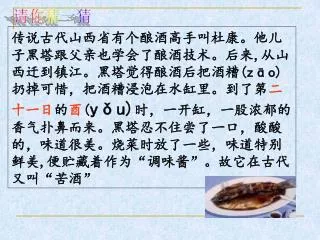 请你猜一猜
传说古代山西省有个酿酒高手叫杜康。他儿
子黑塔跟父亲也学会了酿酒技术。后来,从山
西迁到镇江。黑塔觉得酿酒后把酒糟(zāo)
扔掉可惜，把酒糟浸泡在水缸里。到了第二
十一日的酉(yǒu)时，一开缸，一股浓郁的
香气扑鼻而来。黑塔忍不住尝了一口，酸酸
的，味道很美。烧菜时放了一些，味道特别
鲜美,便贮藏着作为“调味酱”。故它在古代
又叫“苦酒”